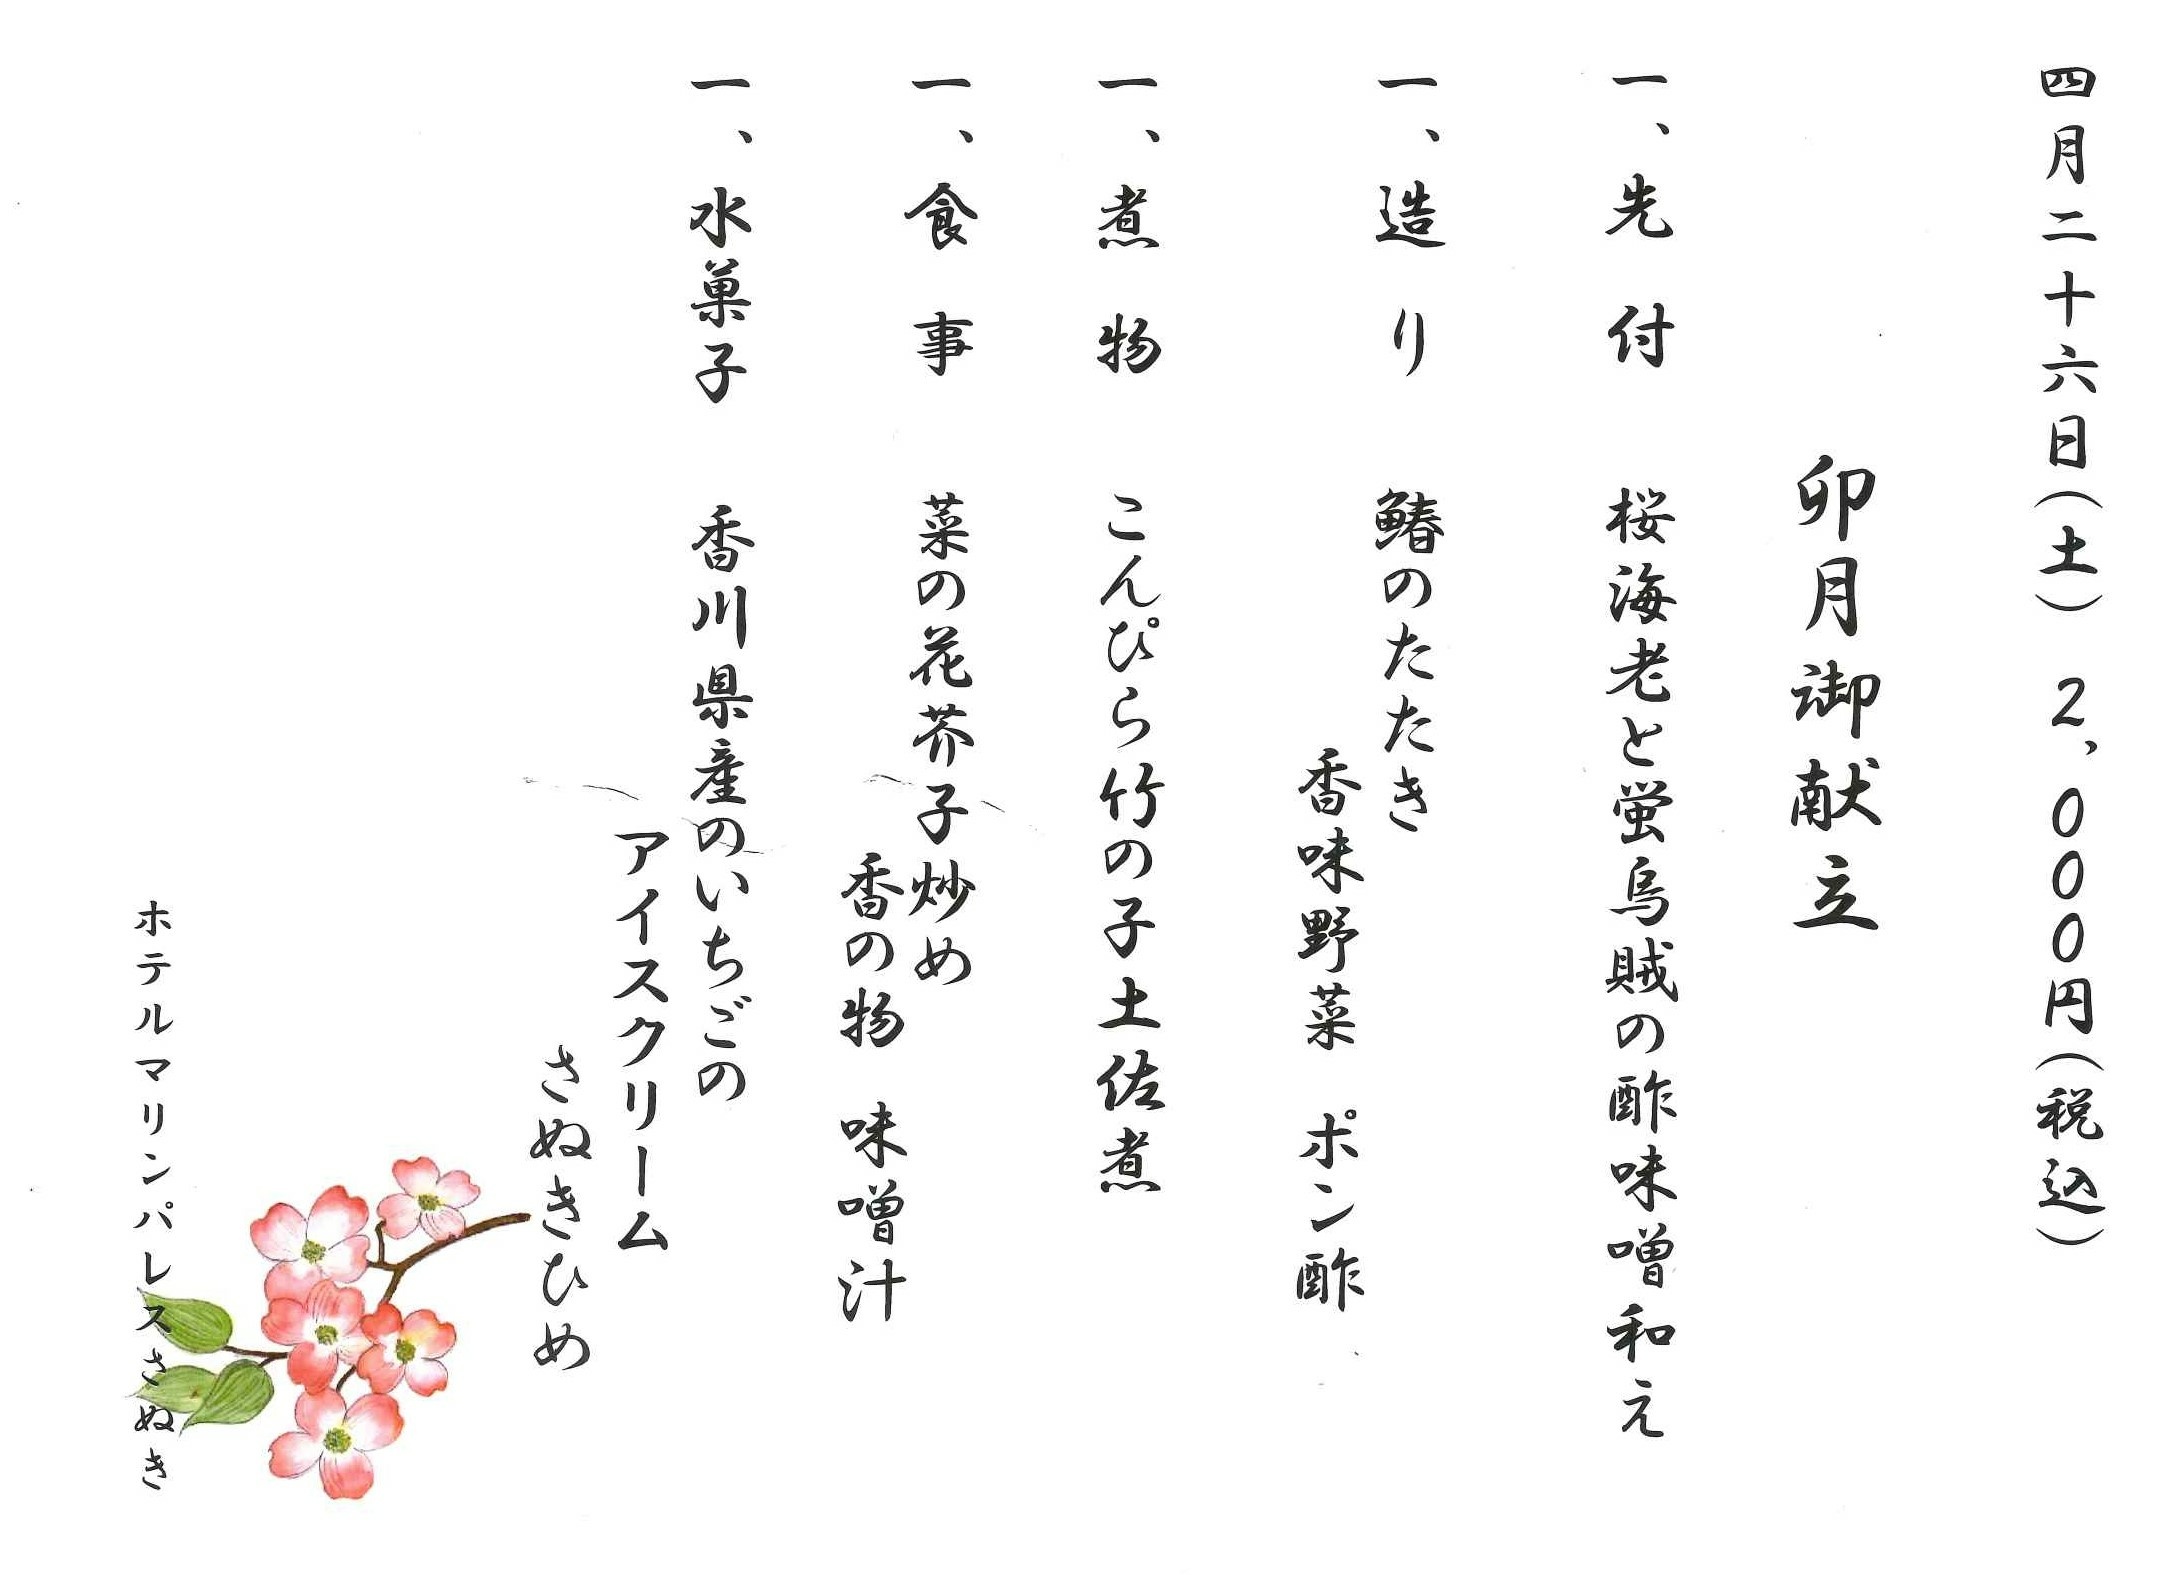 四月二十六日（土）　2,000円（税込）
卯月御献立
一、先　付　桜海老と蛍烏賊の酢味噌和え
一、造　り　鰆のたたき
香味野菜　ポン酢
一、煮　物　こんぴら竹の子土佐煮
一、食　事　菜の花芥子炒め
香の物　味噌汁
一、水菓子　香川県産のいちごの
アイスクリーム
さぬきひめ
ホテルマリンパレスさぬき